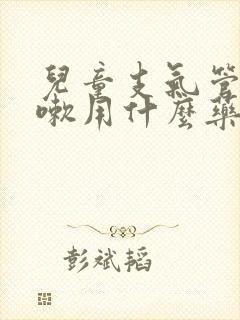 兒童支氣管
嗽用什麼藥
彭斌韬